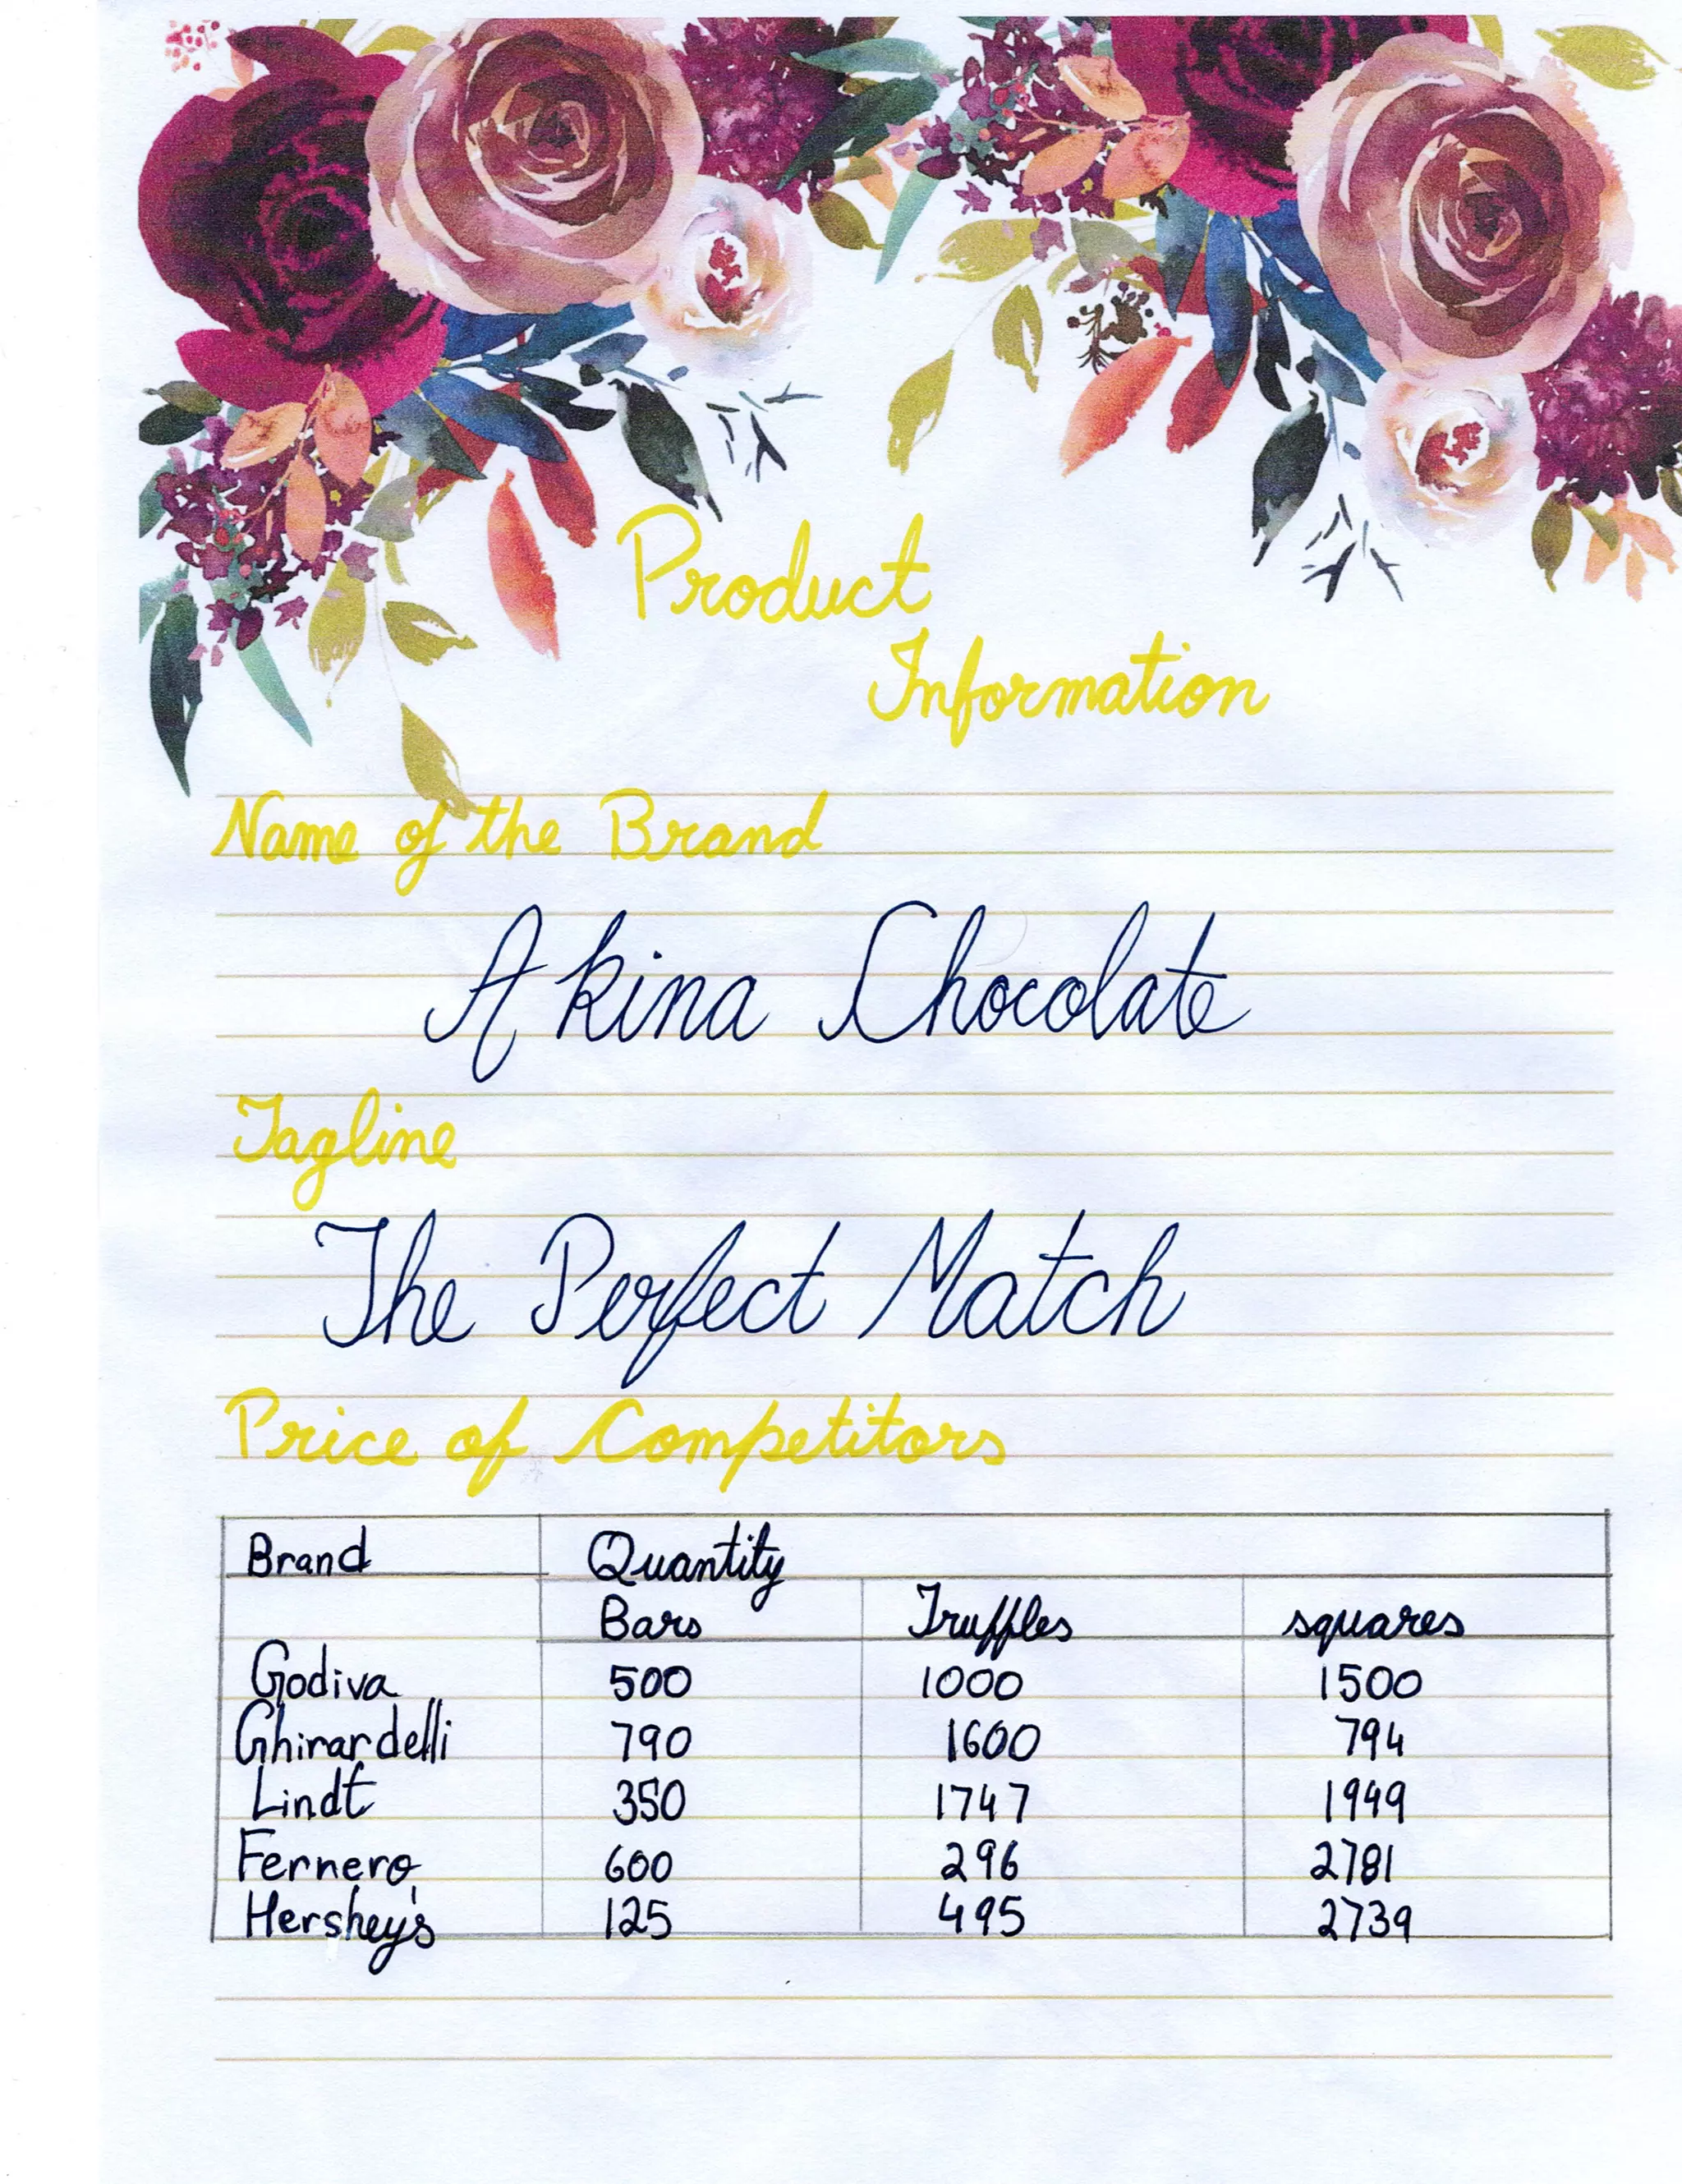 Product
Information
Name of the Brand
Akina Chocolate
Tagline
The Perfect Match
Price of Competitors
Brand Quantity
Bars Truffles squares
Godiva 500 1000 1500
Ghirardelli 790 1600 794
Lindt 350 1747 1949
Fernero 600 296 2781
Hershey's 125 495 2739